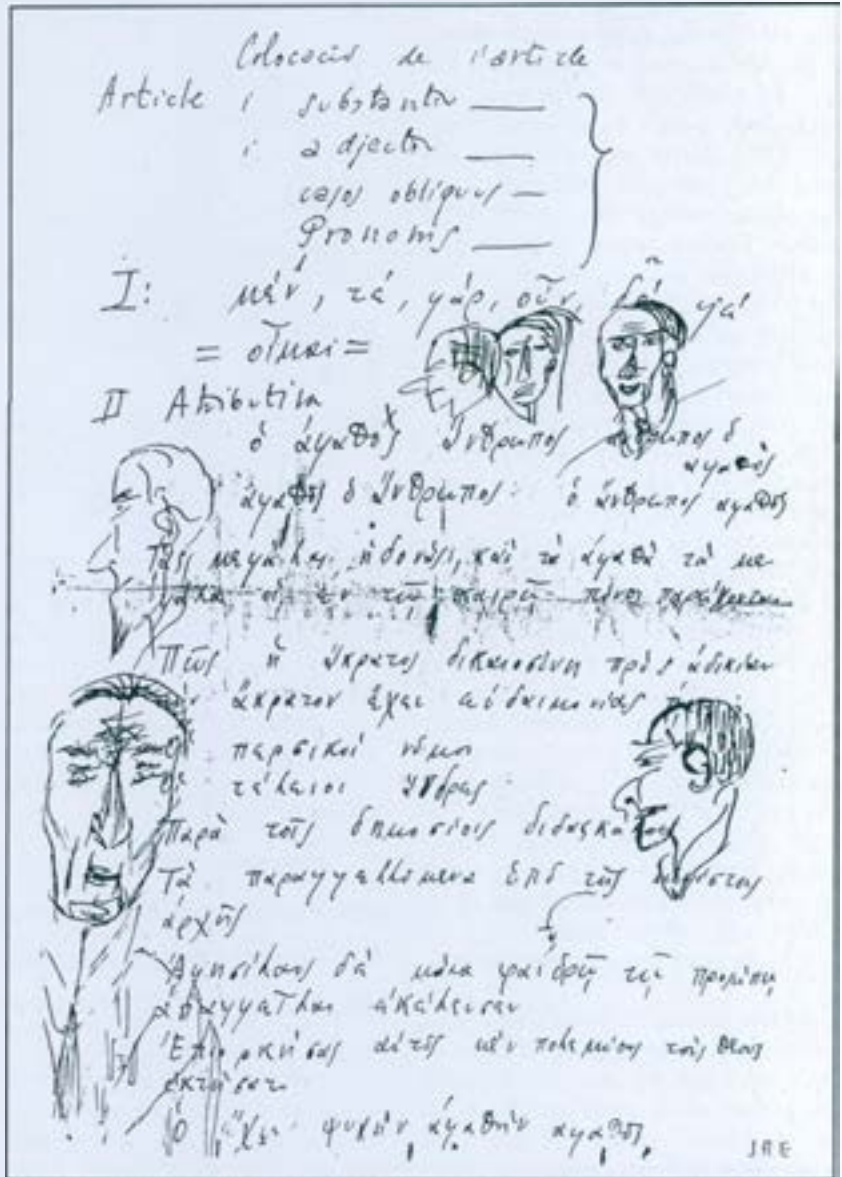 Colocació de l'article
Article i substantiu
i adjectiu
casos obliquus
Pronoms
I: μέν, τέ, γάρ, οὖν, δέ, γέ
= οἶμαι =
II Atributiva
ὁ ἀγαθὸς ἄνθρωπος ἄνθρωπος ὁ
ἀγαθὸς
ἀγαθὸς ὁ ἄνθρωπος ὁ ἄνθρωπος ἀγαθὸς
Τὰς μεγάλας ἡδονὰς, καὶ τὰ ἀγαθὰ τὰ με-
γάλα ἐν τῷ καιρῷ πόνοι
Πῶς ἡ ἄκρατος δικαιοσύνη πρὸς ἀδικίαν
ἄκρατον ἔχει εὐδαιμονίας
περσικοὶ νόμοι
τέλειοι ἄνδρες
Παρὰ τοῖς δημοσίοις διδασκάλοις
Τὰ παραγγελλόμενα ὑπὸ τῆς
ἀρχῆς
Ἀγησίλαος δὲ μάλα φαιδρῷ τῷ προσώπῳ
ἀπαγγεῖλαι ἐκέλευσεν
Ἐπιορκήσας μὲν πολεμίους τοὺς θεοὺς
ἐκτήσατο
Ὁ ἔχων ψυχὴν ἀγαθὴν ἀγαθὸς
JRE